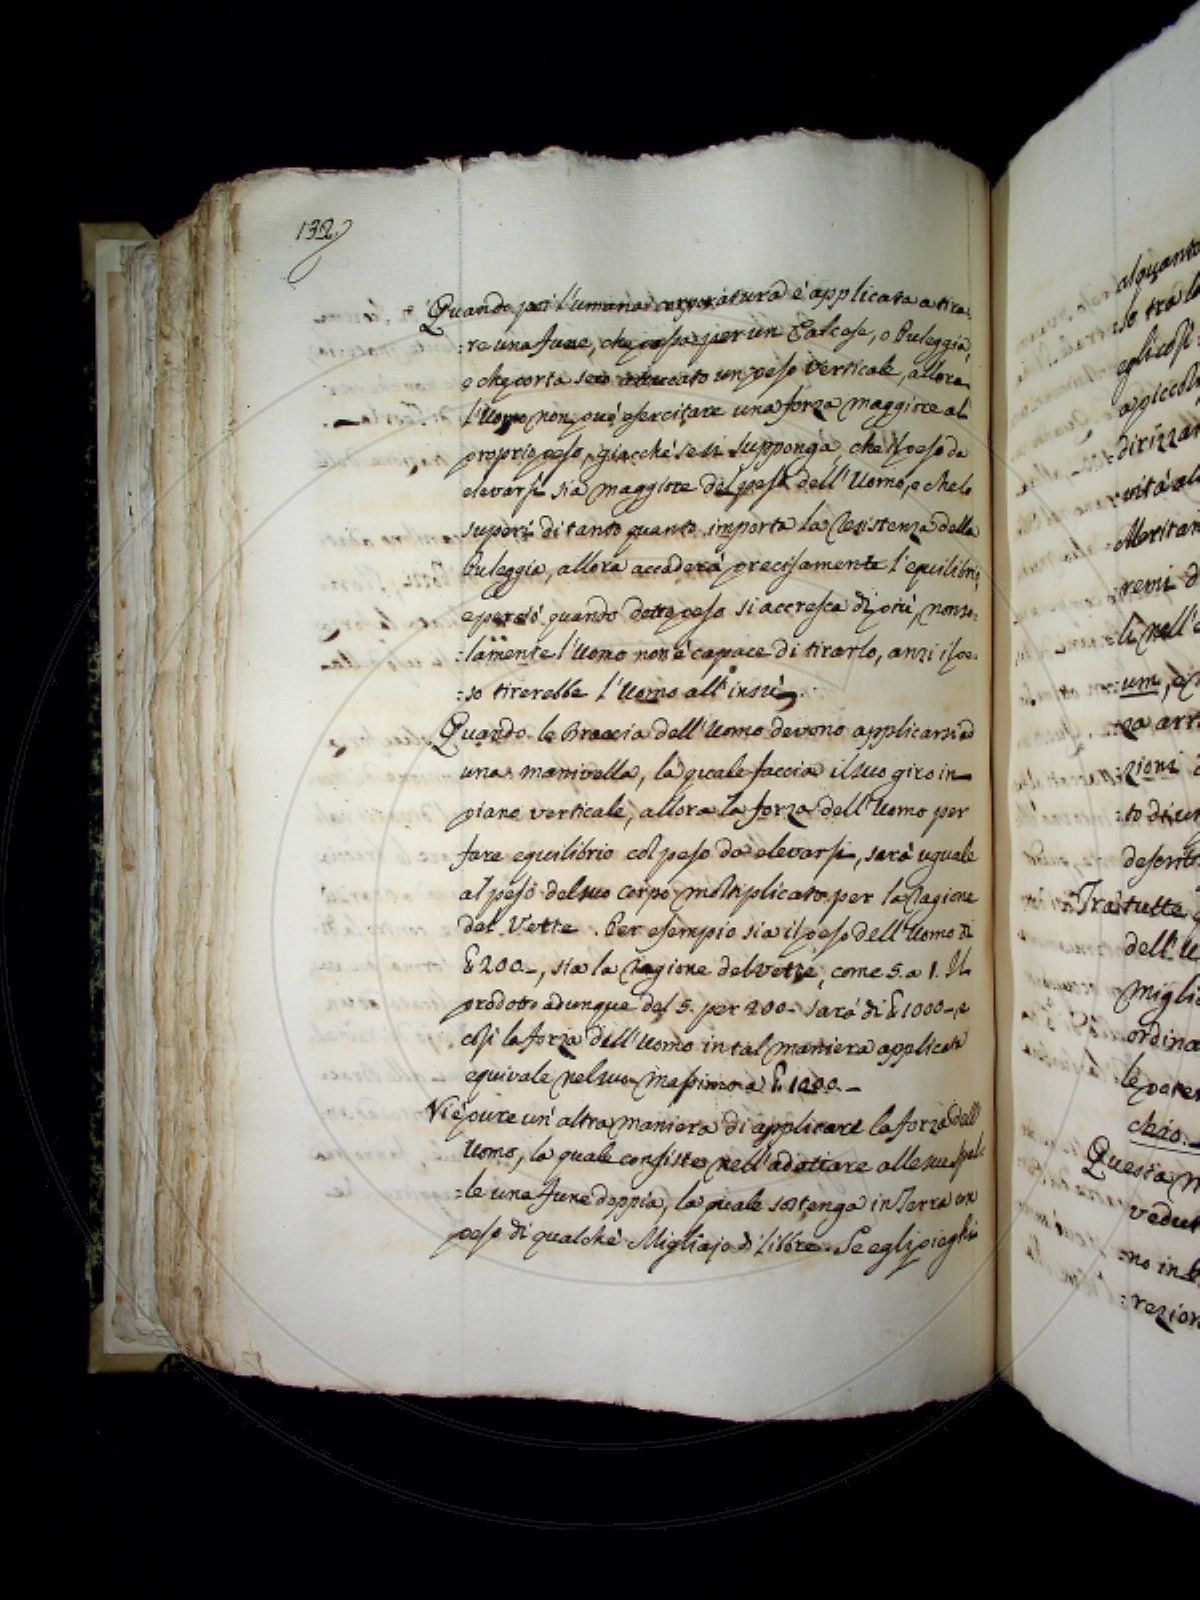 132.
Quando poi l'umana corporatura è applicata a tira-
:re una fune, che passa per un Calcese, o Puleggia,
e che porta seco attaccato un peso verticale, allora
l'Uomo non può esercitare una forza maggiore al
proprio peso, giacchè se si supponga, che il peso da
elevarsi sia maggiore del peso dell'Uomo, e che lo
superi di tanto quanto importa la resistenza della
Puleggia, allora accaderà precisamente l'equilibrio,
e perciò quando detto peso si accresca di più, non so-
:lamente l'Uomo non è capace di tirarlo, anzi il pe-
:so tirerebbe l'Uomo all'insù.
Quando le Braccia dell'Uomo devono applicarsi ad
una manivella, la quale faccia il suo giro in
piano verticale, allora la forza dell'Uomo per
fare equilibrio col peso da elevarsi, sarà uguale
al peso del suo corpo moltiplicato per la ragione
del Vette. Per esempio sia il peso dell'Uomo di
₤ 200.-, sia la ragione del vette, come 5. a 1. Il
prodotto adunque del 5. per 200.- sarà di ₤ 1000-, e
così la forza dell'Uomo in tal maniera applicata
equivale nel suo massimo a ₤ 1000.-
Vi è pure un'altra maniera di applicare la forza dell'
Uomo, la quale consiste nell'adattare alle sue spal-
:le una fune doppia, la quale sostenga in Terra un
peso di qualche Migliajo di libbre. Se egli pieghi
alquanto
:so tra la
egli così
a piccol
dirizzar
:vità al
Meritan
:remi d
li nell'
:um, e
:za arr
:zioni
:to di un
descritt
Tra tutte
dell'U
miglio
ordina
le poten
chio.
Questa m
vedut
:no in
:rezion